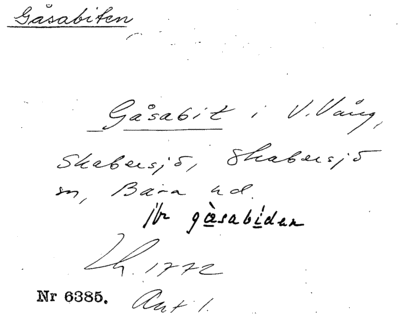 Gåsabiten
Gåsabit i V. Vång,
Skabersjö, Skabersjö
sn, Bara hd.
jfr gàsabíden
Lh. 1772
Nr 6385. Akt 1.